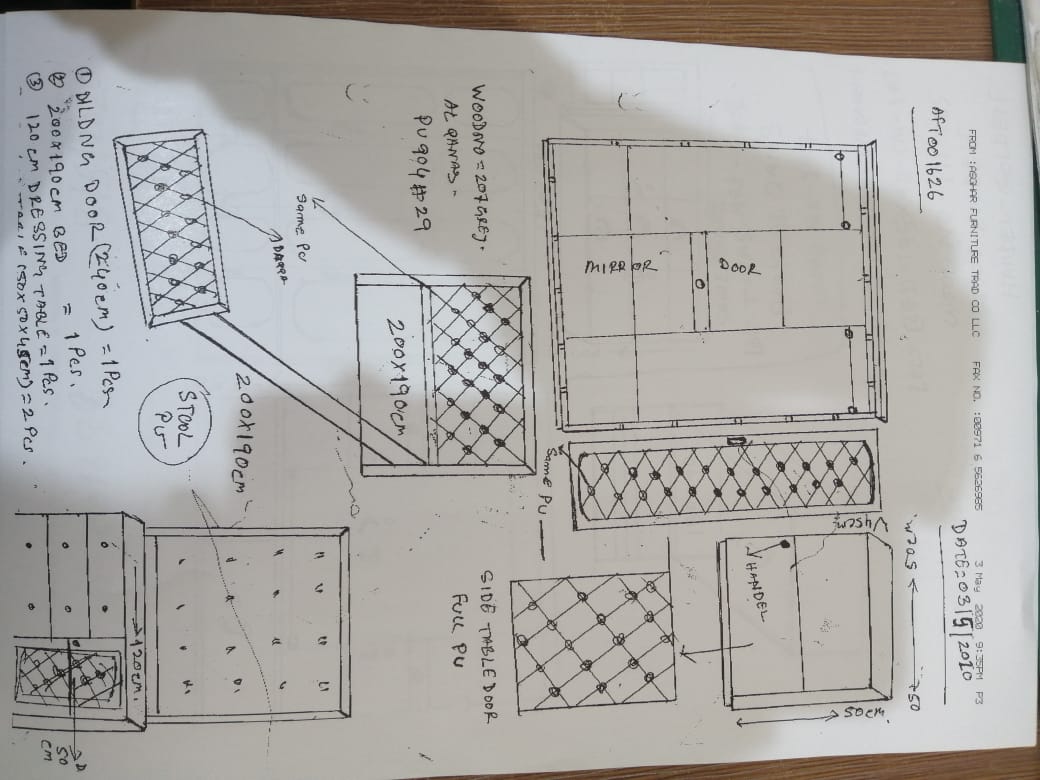 FROM :ASGHAR FURNITURE TRAD CO LLC FAX NO. :00971 6 5626985 3 May 2020 9:35PM P3
DATE=03/5/2020
AFT001626
50cm
50
45cm
50cm.
HANDEL
DOOR
MIRROR
Same PU
SIDE TABLE DOOR
FULL PU
WOODNO = 207 GREY.
AL QANAS-
PU 904 # 29
200X190cm
Same PU
200X190cm
STOOL
PU
120cm.
50
cm
① DILDNG DOOR (240cm) = 1 Pcs
② 200X190cm BED = 1 Pcs.
③ 120 cm DRESSING TABLE = 1 Pcs.
TABLE (50X50X45cm) = 2 Pcs.